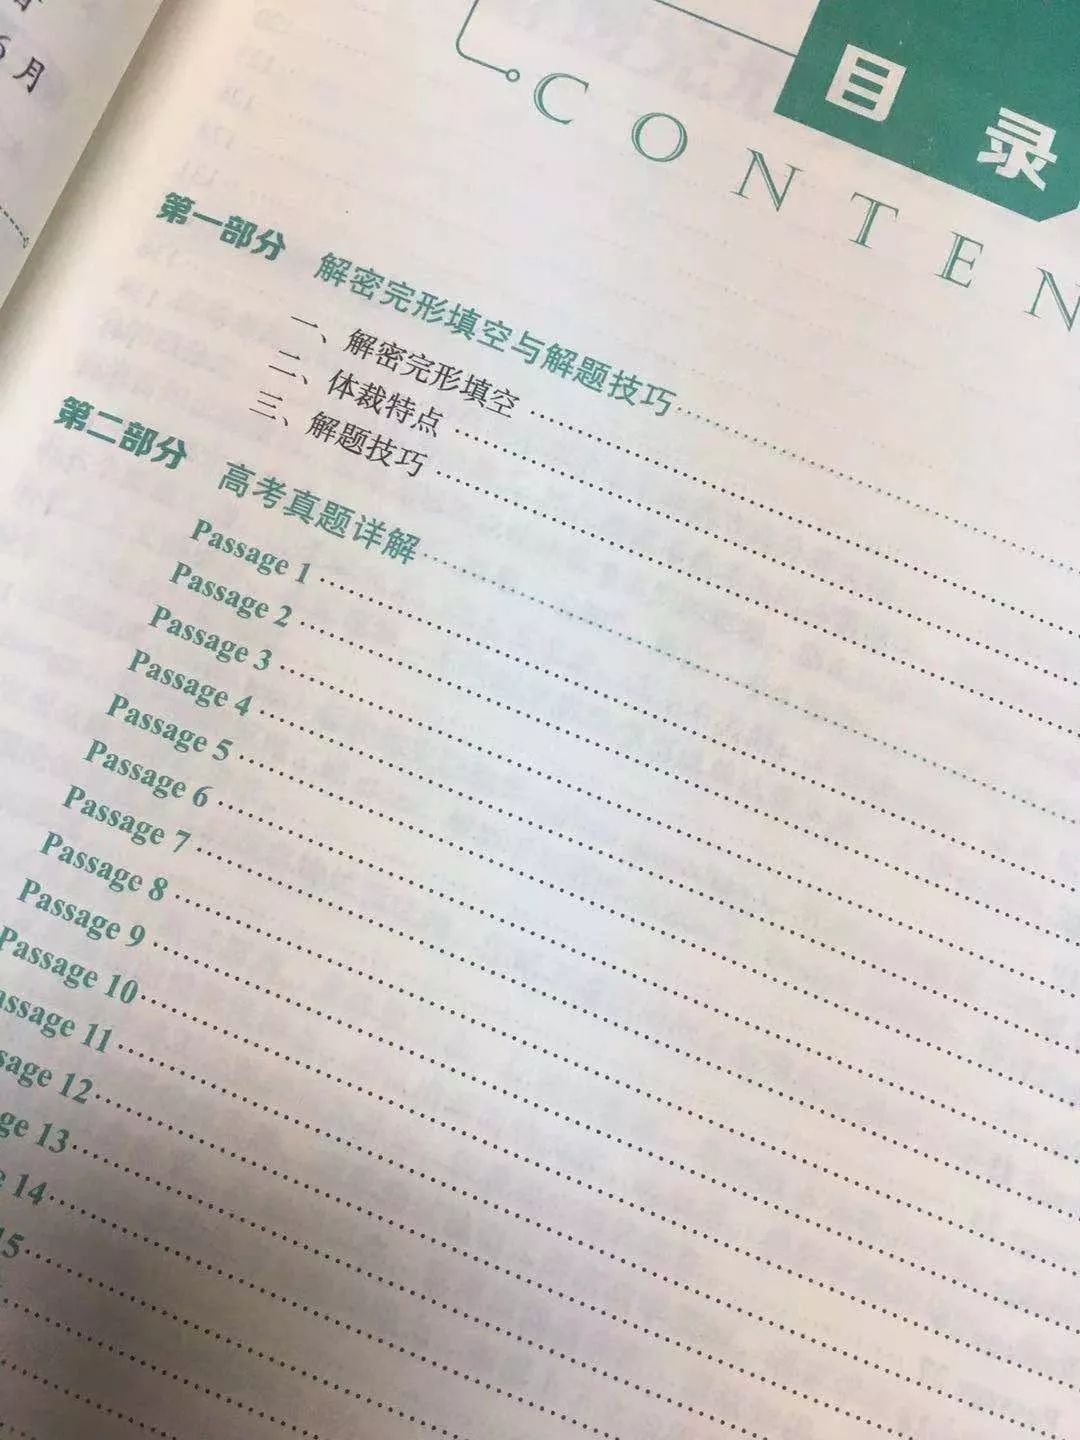 6月
目录
CONTEN
第一部分 解密完形填空与解题技巧
一、解密完形填空
二、体裁特点
三、解题技巧
第二部分 高考真题详解
Passage 1
Passage 2
Passage 3
Passage 4
Passage 5
Passage 6
Passage 7
Passage 8
Passage 9
Passage 10
assage 11
sage 12
ge 13
e 14
15